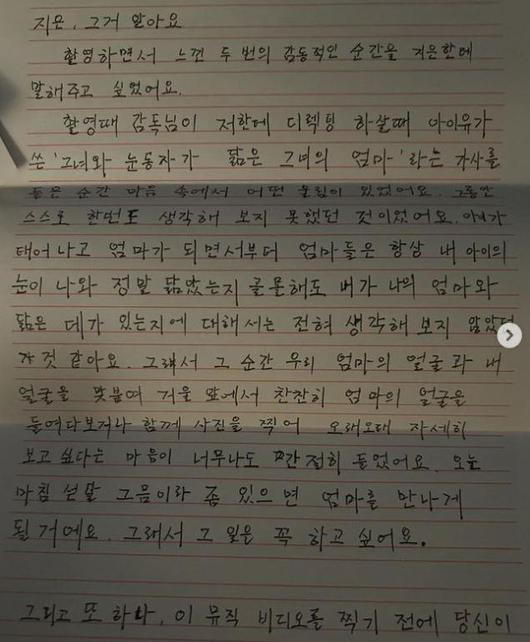 지은, 그거 알아요
촬영하면서 느낀 두 번의 감동적인 순간을 지은한테
말해주고 싶었어요.
촬영때 감독님이 저한테 디렉팅 하실때 아이유가
쓴 '그녀와 눈동자가 닮은 그녀의 엄마' 라는 가사를
들은 순간 마음 속에서 어떤 울림이 있었어요. 그동안
스스로 한번도 생각해 보지 못했던 것이었어요. 아이가
태어나고 엄마가 되면서부터 엄마들은 항상 내 아이의
눈이 나와 정말 닮았는지 골몰해도 내가 나의 엄마와
닮은 데가 있는지에 대해서는 전혀 생각해 보지 않았던
것 같아요. 그래서 그 순간 우리 엄마의 얼굴과 내
얼굴을 맞붙여 거울 앞에서 찬찬히 엄마의 얼굴을
들여다보거나 함께 사진을 찍어 오래오래 자세히
보고 싶다는 마음이 너무나도 간절히 들었어요. 오늘
마침 섣달 그믐이라 좀 있으면 엄마를 만나게
될 거예요. 그래서 그 일은 꼭 하고 싶어요.
그리고 또 하나, 이 뮤직 비디오를 찍기 전에 당신이